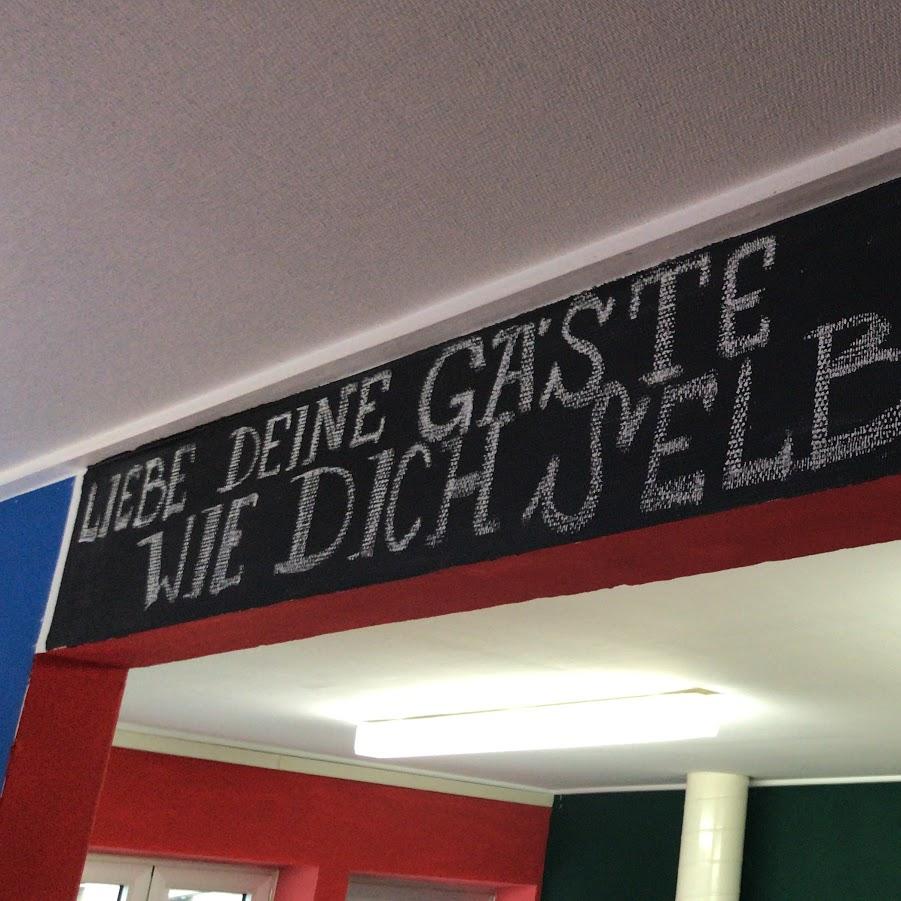 LIEBE DEINE GÄSTE
WIE DICH SELB